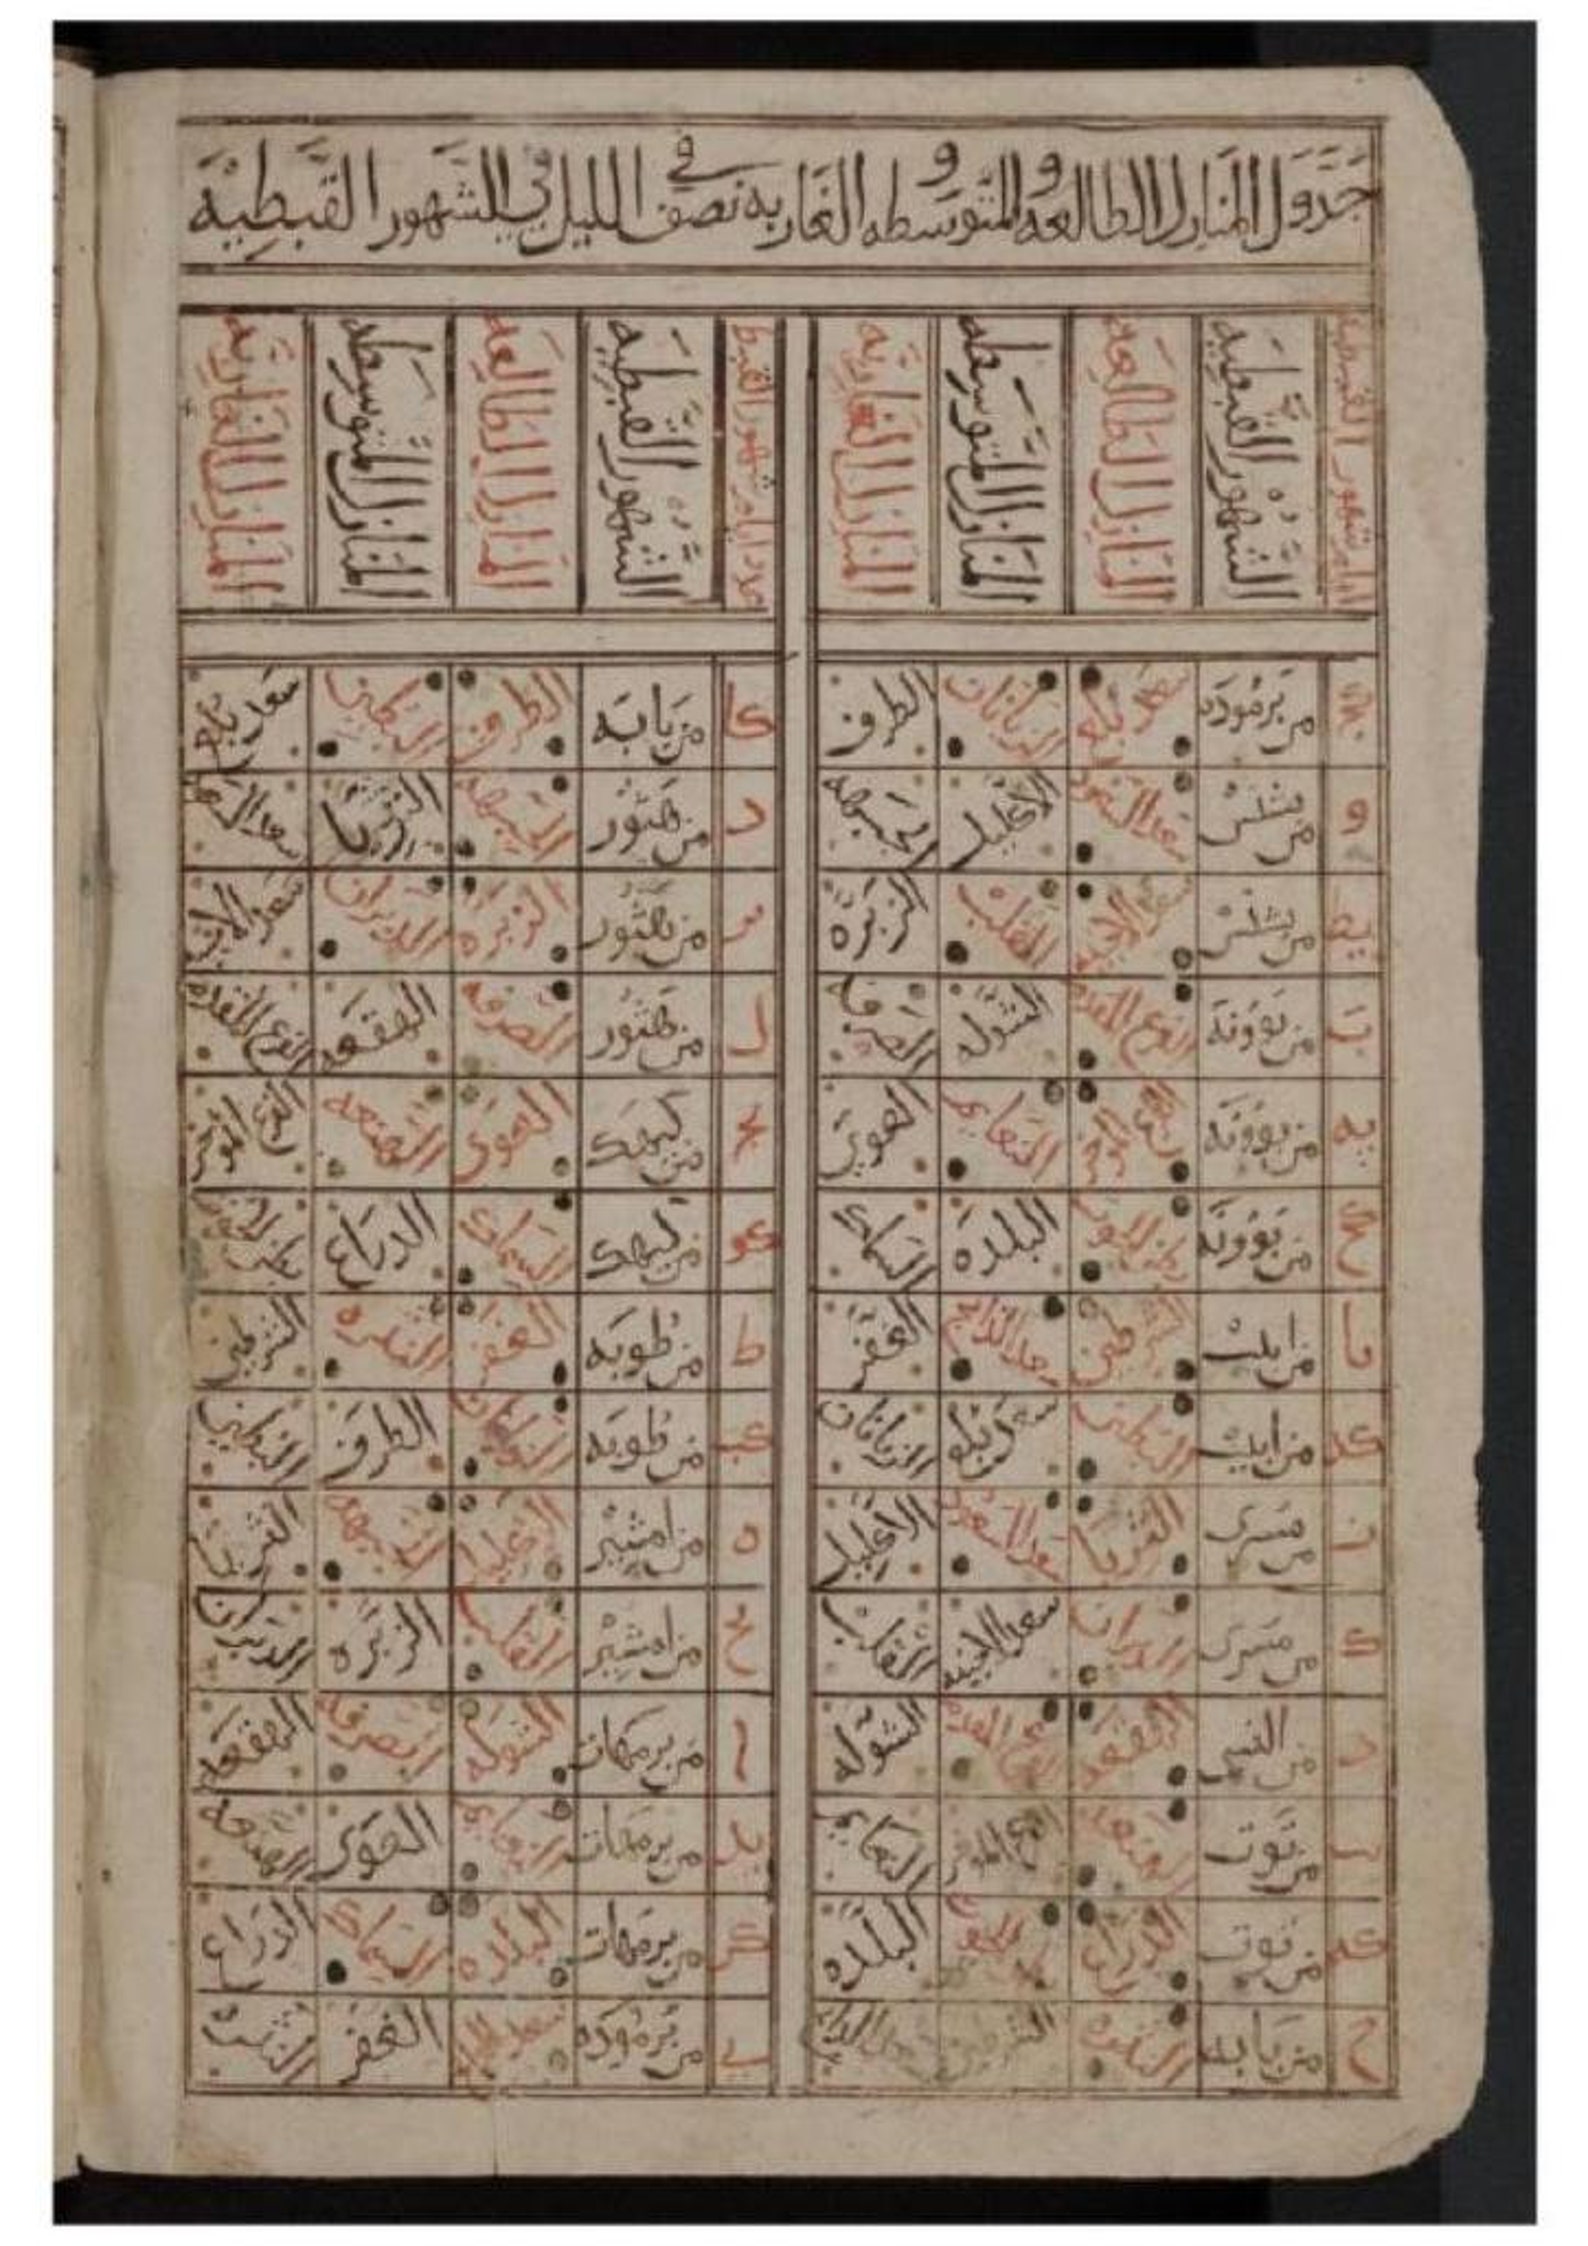 جدول المنازل الطالعه والمتوسطه و الغاربه في نصف الليل في الشهور القبطيه
ايام شهور القبطيه الشهور القبطيه المنازل الطالعه المنازل المتوسطه المنازل الغاربه
من برموده سعد بلع الزبانات الطرف
و من بشنس سعد السعود الاكليل الجبهه
يط من بشنس القلب الزبره
ب من بوونه الفرع المقدم الشوله الصرفه
يه من بوونه الفرع الموخر النعايم العوي
كح من بوونه بطن الحوت البلده السماك
يا من ابيب الشرطين سعد الذابح الغفر
كد من ابيب البطين سعد بلع الزبانان
ز من مسرى الثريا سعد السعود الاكليل
ك من مسرى الدبران سعد الاخبيه القلب
د من النسي الهقعه الفرع المقدم الشوله
من توت الهنعه الفرع الموخر النعايم
كد من توت الذراع البلده
ح من بابه النثره الشرطين
عدد ايام شهور القبط الشهور القبطيه المنازل الطالعه المنازل المتوسطه المنازل الغاربه
كا من بابه الطرف البطين سعد بلع
د من هتور الجبهه الثريا سعد السعود
من هتور الزبره الدبران سعد الاخبيه
ل من هتور الصرفه الهقعه الفرع المقدم
يج من كيهك العوى الهنعه الفرع الموخر
كو من كيهك السماك الذراع بطن الحوت
ط من طوبه الغفر النثره الشرطين
كب من طوبه الزبانان الطرف البطين
ه من امشير الاكليل الجبهه الثريا
يح من امشير القلب الزبره الدبران
ا من برمهات الشوله الصرفه الهقعه
يد من برمهات النعايم العوى الهنعه
كز من برمهات البلده السماك الذراع
ي من برموده سعد الغفر النثره